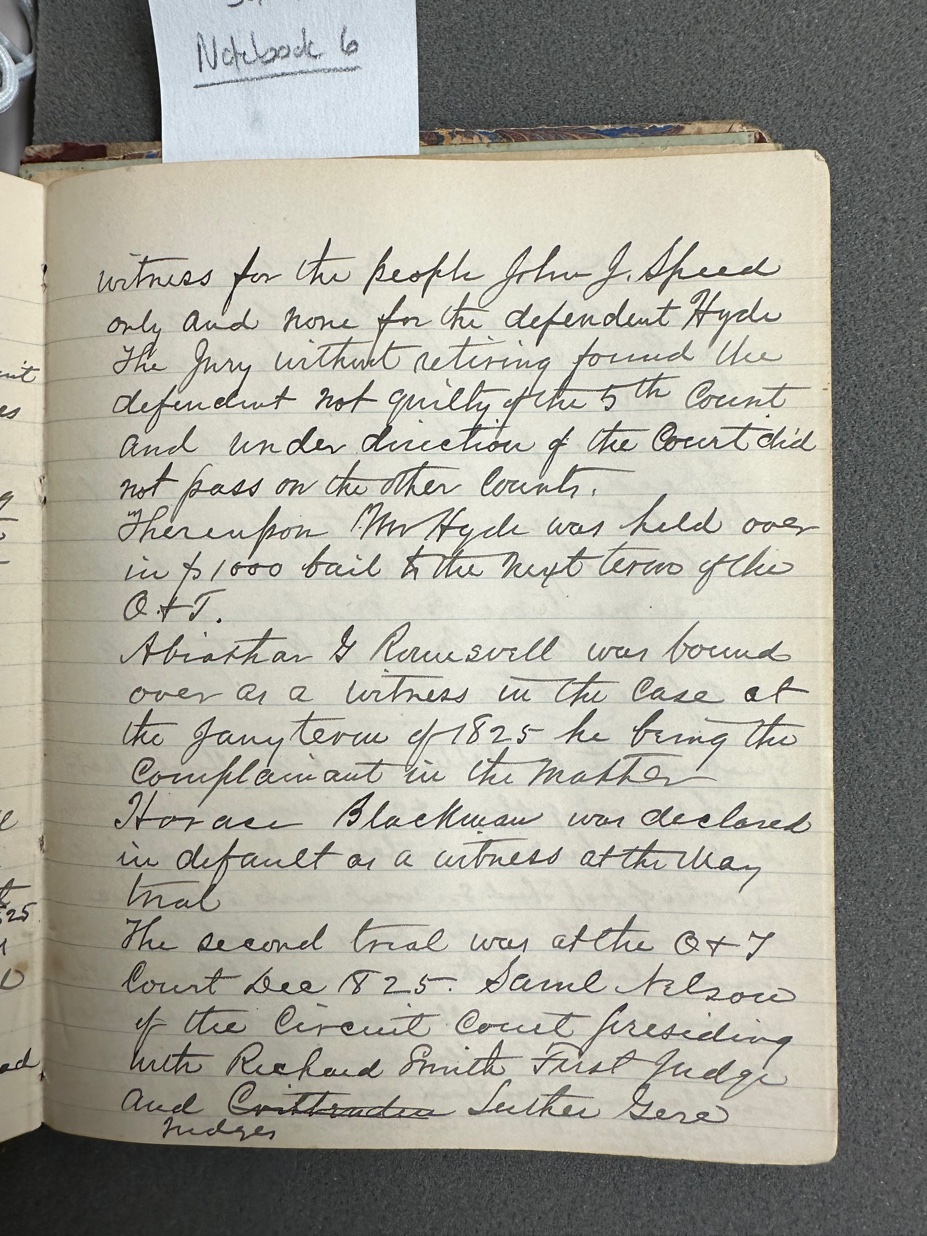 Notebook 6
witness for the people John J. Speed
only and none for the defendent Hyde
The Jury without retiring found the
defendent not guilty of the 5th Count
and under direction of the Court did
not pass on the other Counts.
Thereupon Mr Hyde was held over
in $1000 bail to the next term of the
O. & T.
Abiathar G Rounsvell was bound
over as a witness in the case at
the Jany term of 1825 he being the
Complainant in the matter
Horace Blackman was declared
in default as a witness at the May
trial
The second trial was at the O & T
Court Dec 1825. Saml Nelson
of the Circuit Court presiding
with Richard Smith First Judge
and Luther Gere
Judges